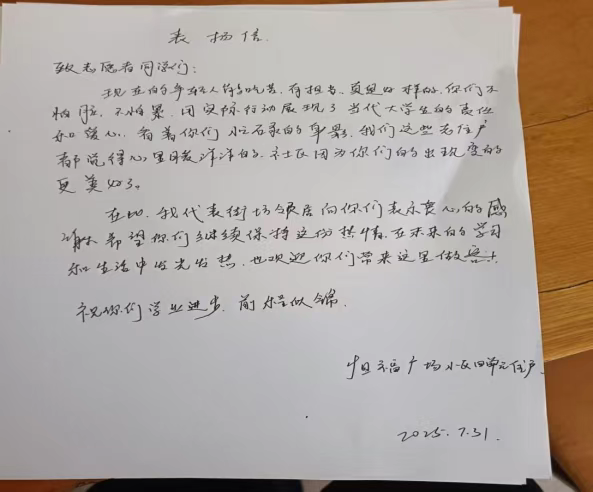 表扬信
致志愿者同学们:
现在的年轻人能吃苦、有担当、真是好样的,你们不
怕脏、不怕累,用实际行动展现了当代大学生的责任
和爱心,看着你们忙碌的身影,我们这些老住户
都觉得心里暖洋洋的,社区因为你们的出现变的
更美好了。
在此,我代表街坊邻居向你们表示衷心的感
谢,希望你们继续保持这份热情,在未来的学习
和生活中发光发热,也欢迎你们常来这里做客!
祝你们学业进步,前程似锦.
福广场小区四单元住户
2025.7.31.